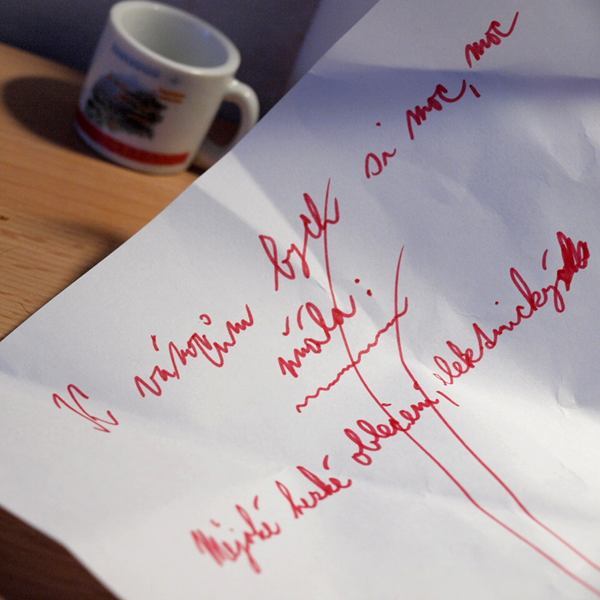 K vánocům bych si moc, moc
přála:
Nějaké hezké oblečení,